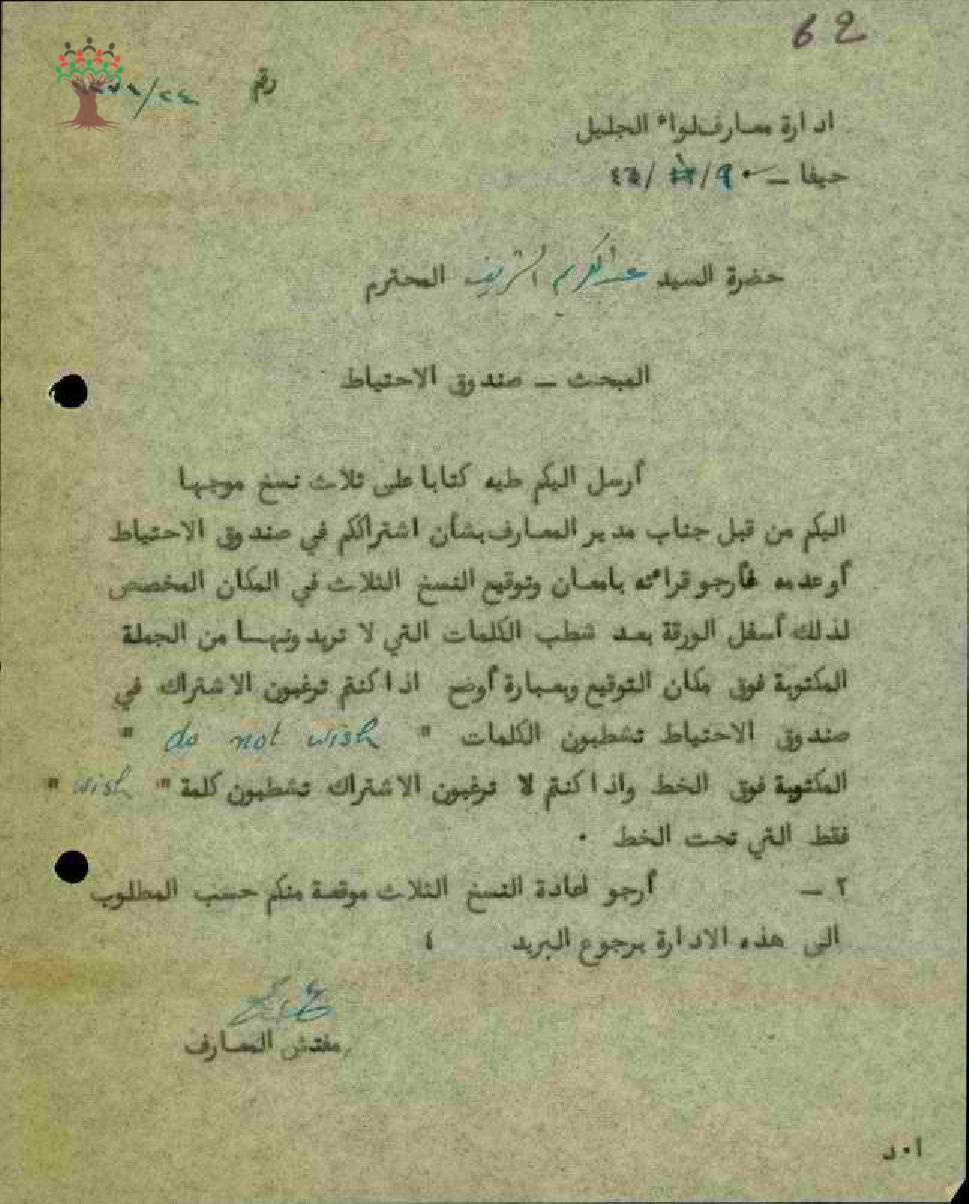 62
رقم
ادارة معارف لواء الجليل
حيفا ــ
حضرة السيد عبد الكريم الشريف المحترم
المبحث ــ صندوق الاحتياط
أرسل اليكم طيه كتابا على ثلاث نسخ موجها
اليكم من قبل جناب مدير المعارف بشأن اشتراككم في صندوق الاحتياط
أو عدمه فأرجو قراءته بامعان وتوقيع النسخ الثلاث في المكان المخصص
لذلك أسفل الورقة بعد شطب الكلمات التي لا تريدونهـا من الجملة
المكتوبة فوق مكان التوقيع وبعبارة أوضح اذا كنتم ترغبون الاشتراك في
صندوق الاحتياط تشطبون الكلمات " do not wish "
المكتوبة فوق الخط واذا كنتم لا ترغبون الاشتراك تشطبون كلمة " wish "
فقط التي تحت الخط .
٢ ــ أرجو اعادة النسخ الثلاث موقعة منكم حسب المطلوب
الى هذه الادارة برجوع البريد ٤
مفتش المعارف
ا٠د